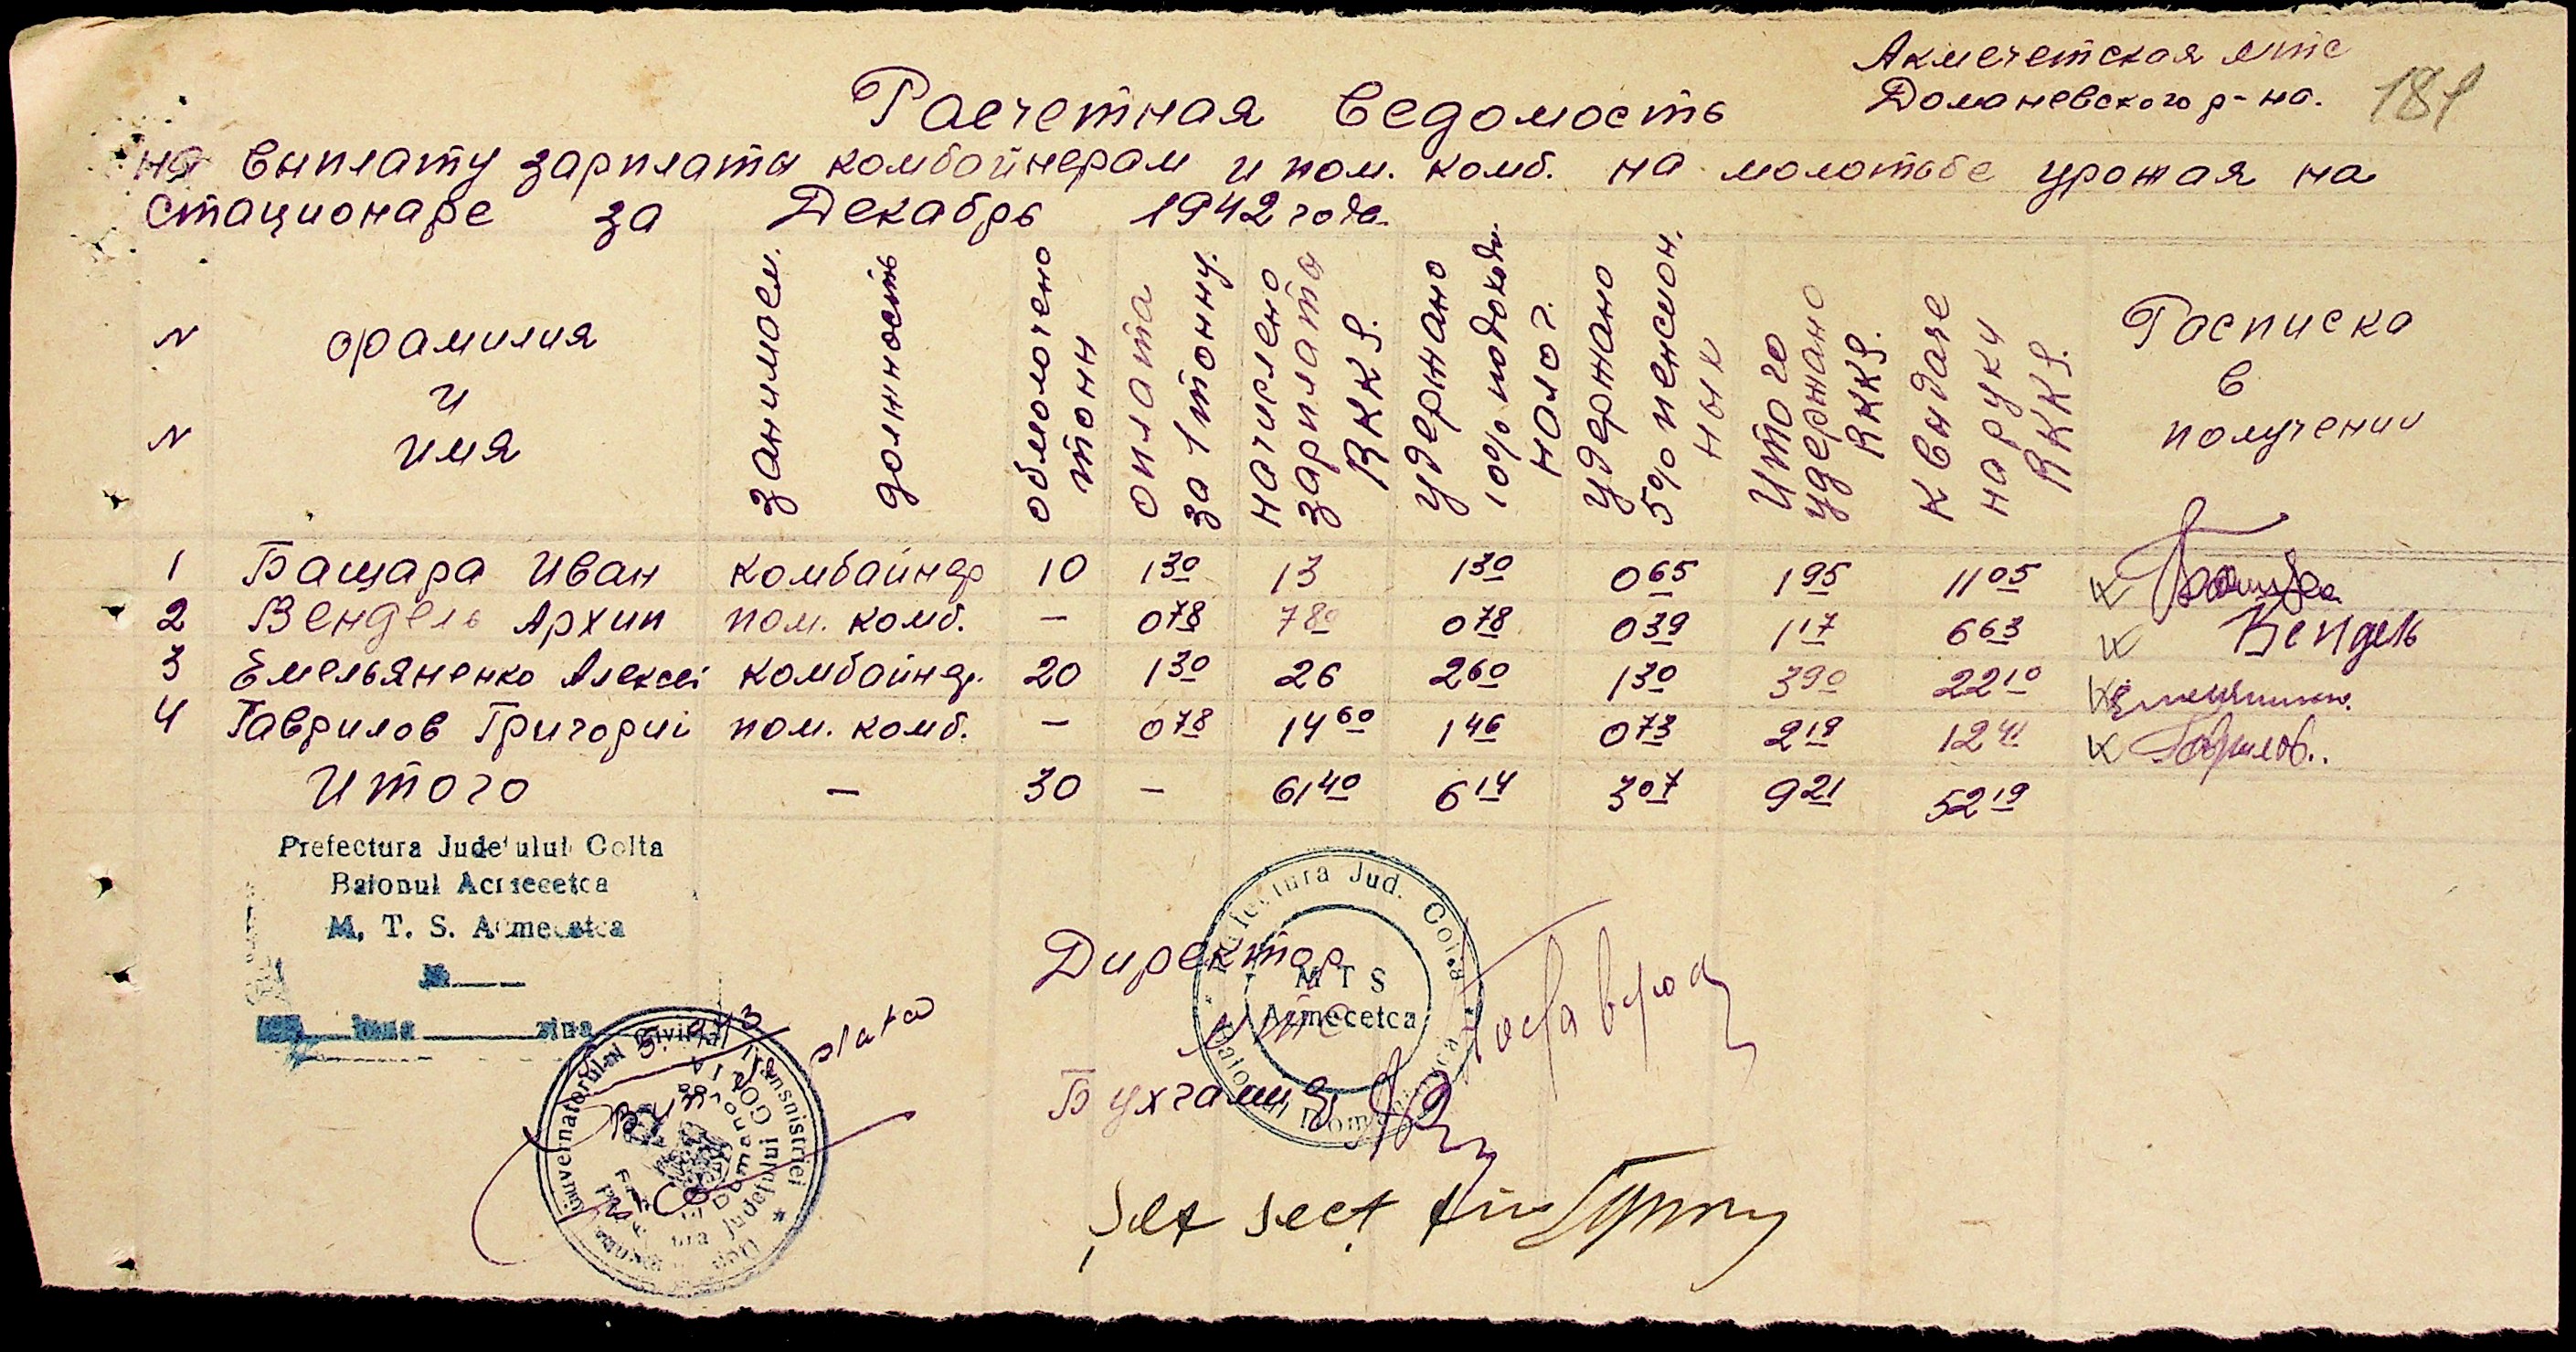 Акмечетская мтс
Доманевского р-на.
181
Расчетная ведомость
на выплату зарплаты комбайнерам и пом. комб. на молотьбе урожая на
стационаре за Декабрь 1942 года.
N N фамилия и имя занимаем. должность обмолочено тонн оплата за 1 тонну. начислено зарплата RKKS. удержано 10% подоходн. налог. удержано 5% пенсион. ных Итого удержано RKKS. к выдаче на руки RKKS. Расписка в получении
1 Бащара Иван комбайнер 10 1 30 13 1 30 0 65 1 95 11 05
2 Вендель Архип пом. комб. — 0 78 7 80 0 78 0 39 1 17 6 63 Вендель
3 Емельяненко Алексей комбайнер. 20 1 30 26 2 60 1 30 3 90 22 10
4 Гаврилов Григорий пом. комб. — 0 78 14 60 1 46 0 73 2 19 12 41 Гаврилов.
Итого — 30 — 61 40 6 14 3 07 9 21 52 19
Prefectura Județului Golta
Raionul Acmecetca
M. T. S. Acmecetca
No
Prefectura Jud. Golta
Raionul Domanevca
M T S
Acmecetca
Директор
мтс
Бухгалтер
Guvernatorul Civil al Transnistriei
Prefectura Județului GOLTA
plata
Șef sect. fin